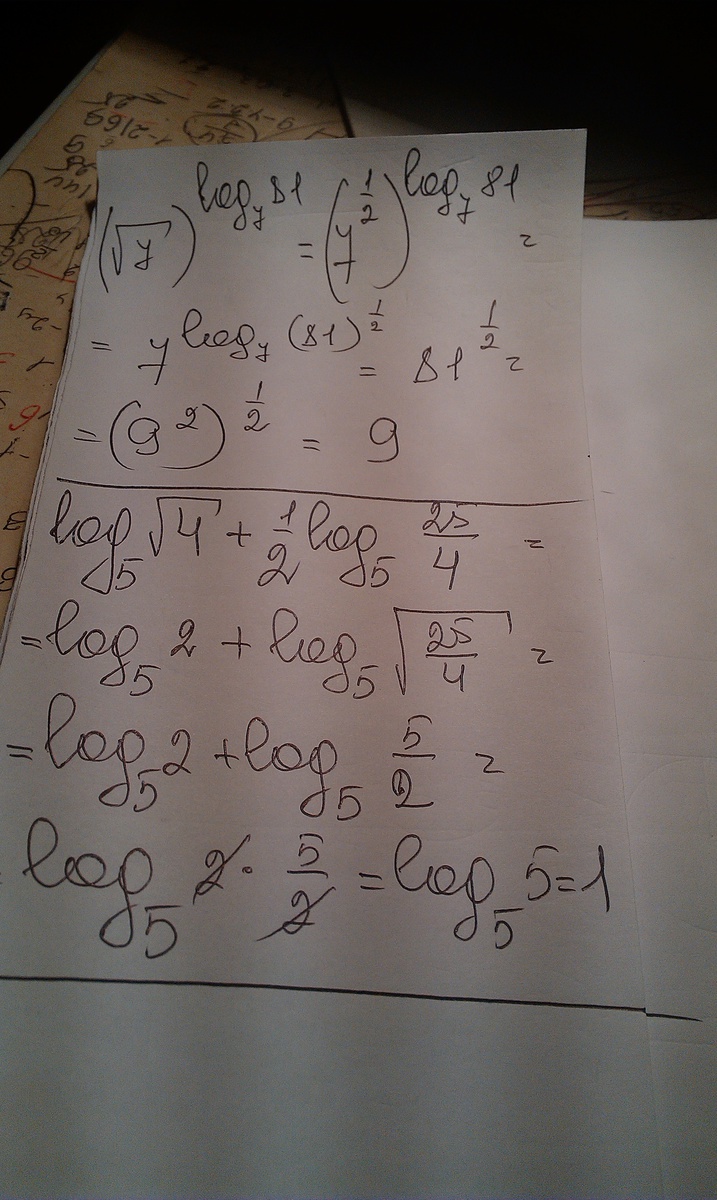 (√7)^(log₇ 81) = (7^(1/2))^(log₇ 81) =
= 7^(log₇ (81)^(1/2)) = 81^(1/2) =
= (9²)^(1/2) = 9
log₅ √4 + 1/2 log₅ 25/4 =
= log₅ 2 + log₅ √(25/4) =
= log₅ 2 + log₅ 5/2 =
log₅ 2 · 5/2 = log₅ 5 = 1